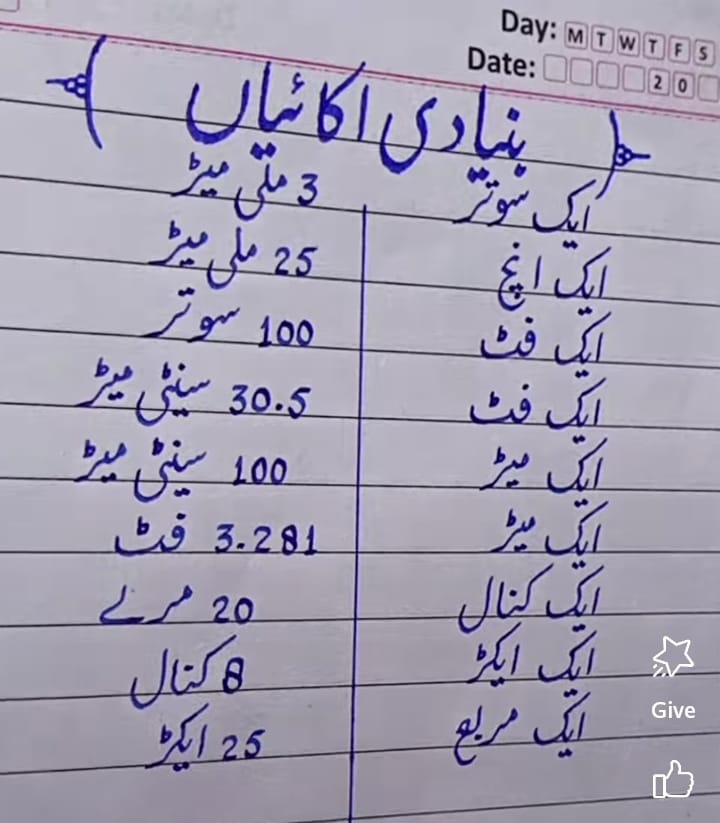 Day: M T W T F S
Date: 20
بنیادی اکائیاں
ایک سوتر 3 ملی میٹر
ایک انچ 25 ملی میٹر
ایک فٹ 100 سوتر
ایک فٹ 30.5 سینٹی میٹر
ایک میٹر 100 سینٹی میٹر
ایک میٹر 3.281 فٹ
ایک کنال 20 مرلے
ایک ایکڑ 8 کنال
ایک مربع 25 ایکڑ
Give